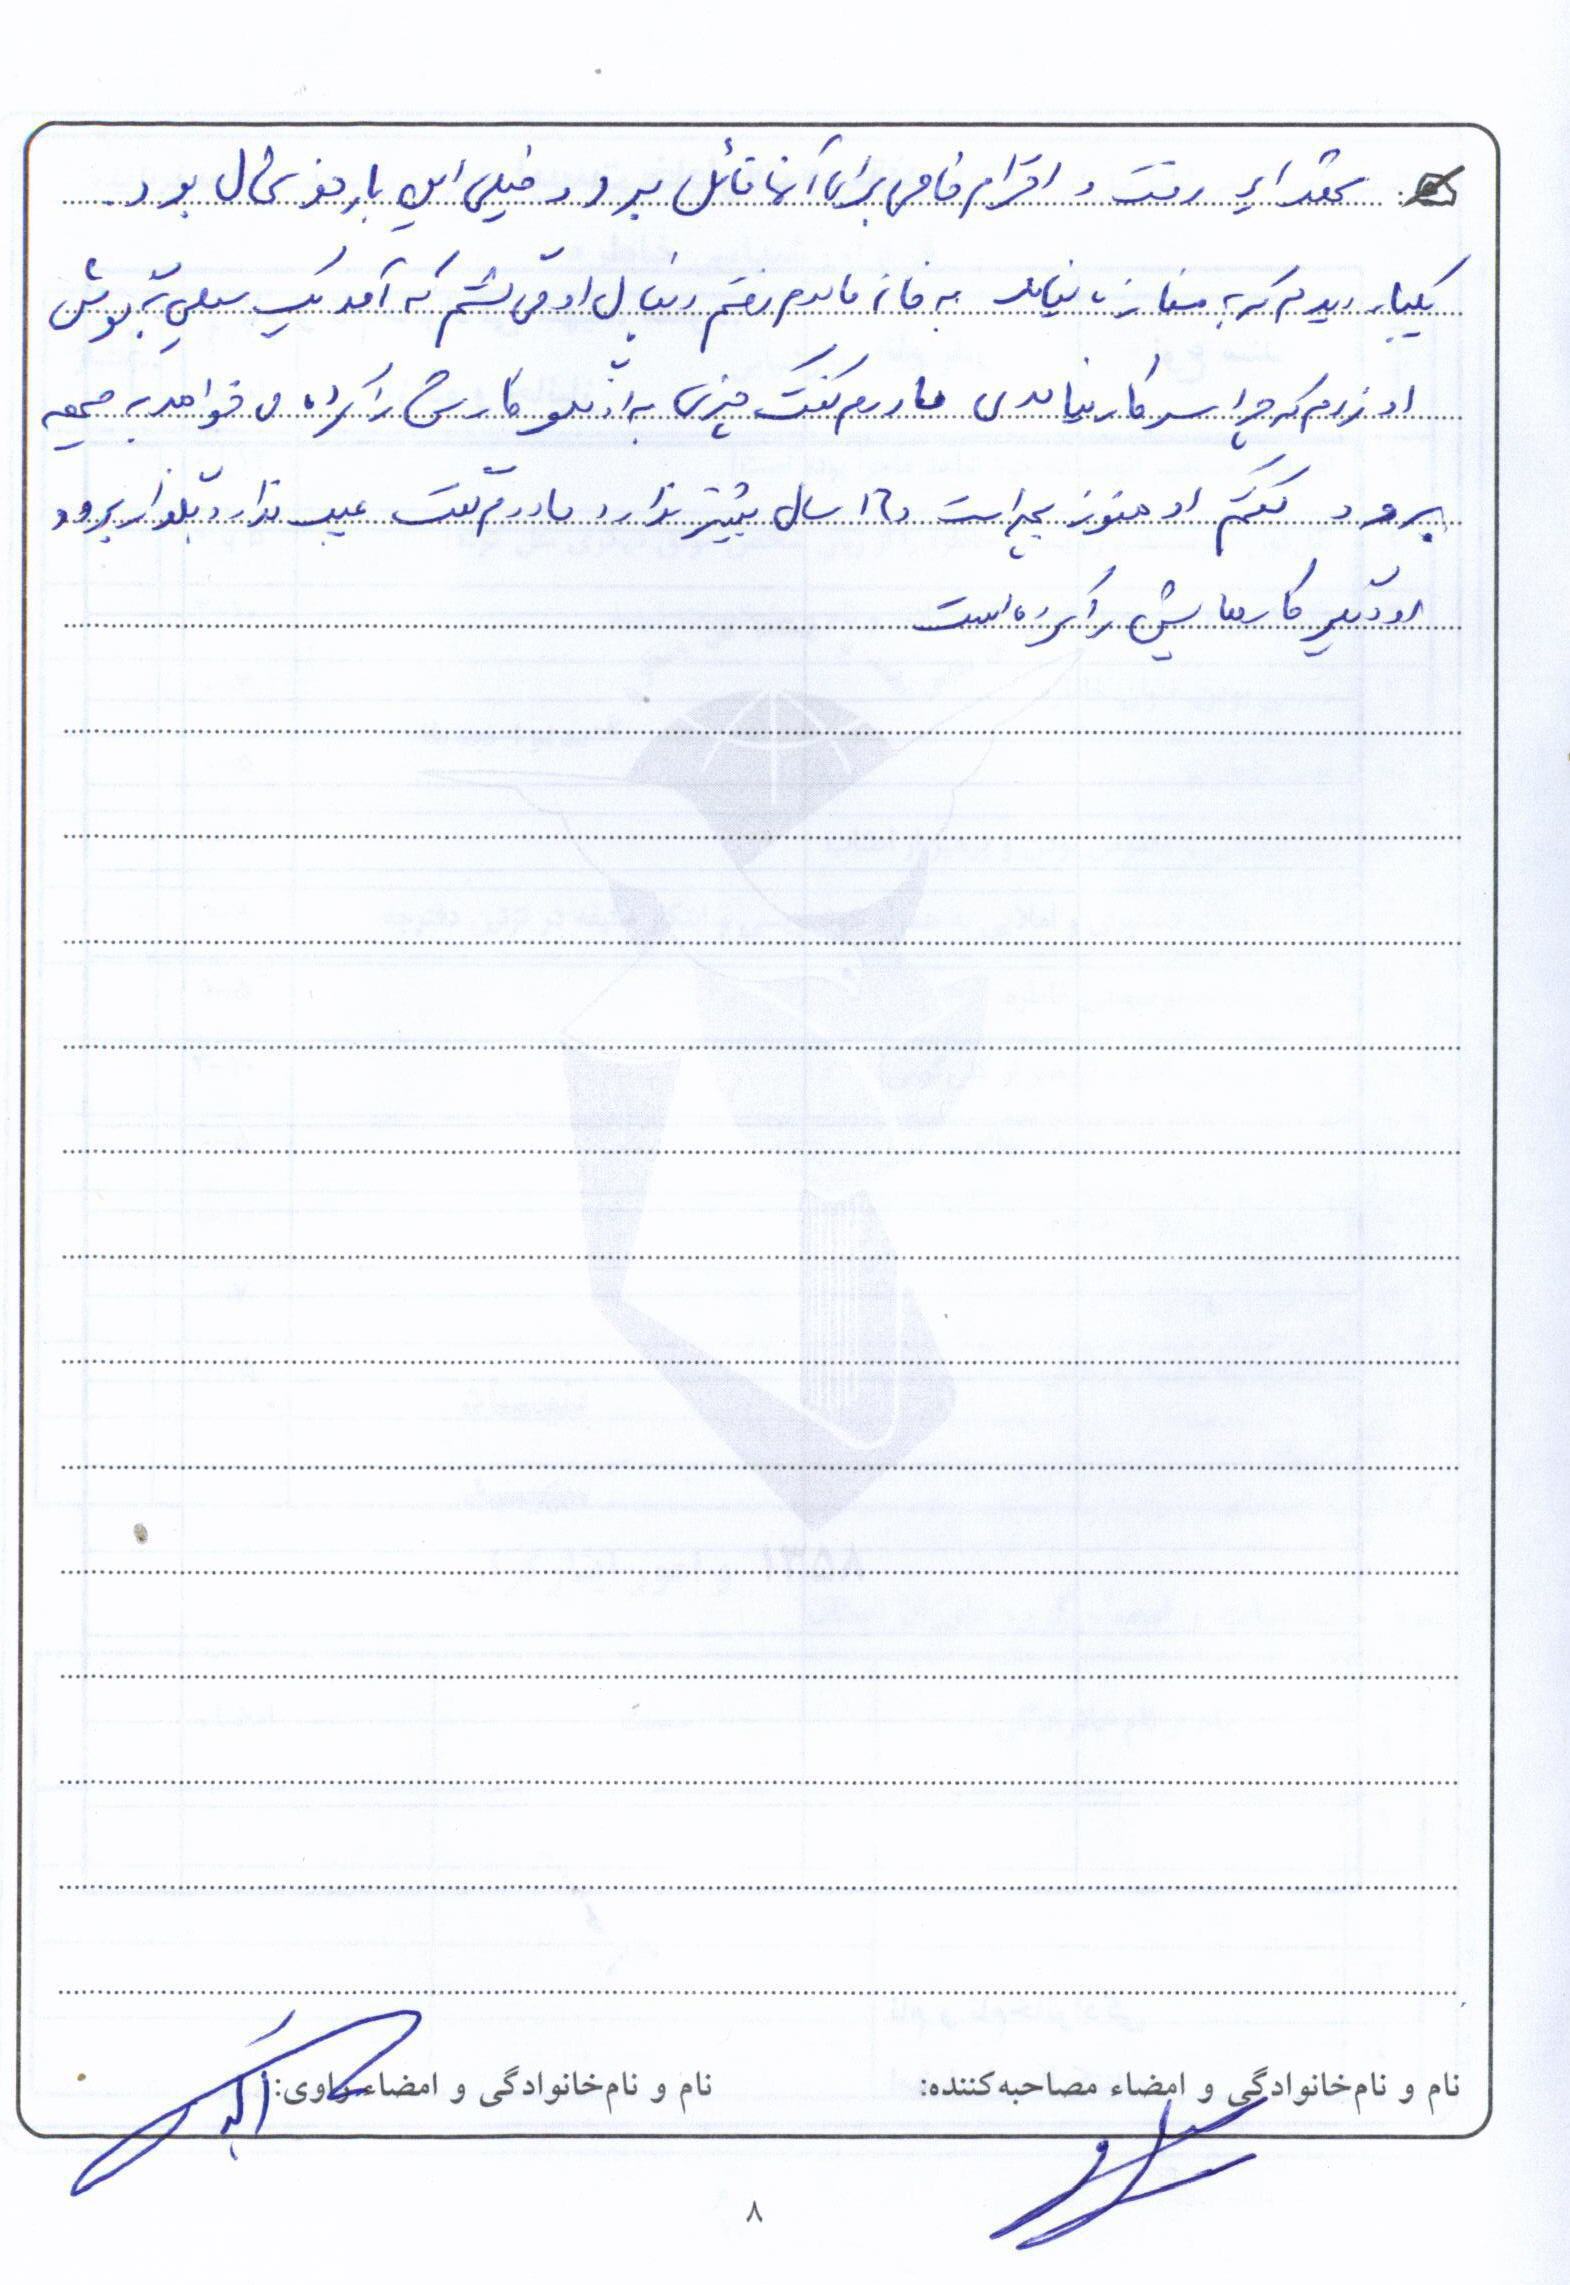 بحقد ای رفت و احترام خاص برای آنها قائل بود و خیلی این بار خوشحال بود.
یکبار دیدم که به مغازه نیامد به خانه مادرم رفتم دنبال او می گشتم که آمد یک سیلی به گوش
او زدم که چرا سر کار نیامدی مادرم گفت چیزی به او نگو کارش را کرده می خواهد به جبهه
برود گفتم او هنوز بچه است و ۱۶ سال بیشتر ندارد مادرم گفت عیب ندارد بگذار برود
او دیگر کارهایش را کرده است
نام و نام‌خانوادگی و امضاء مصاحبه‌کننده:
نام و نام‌خانوادگی و امضاء راوی:
اکبر
۸